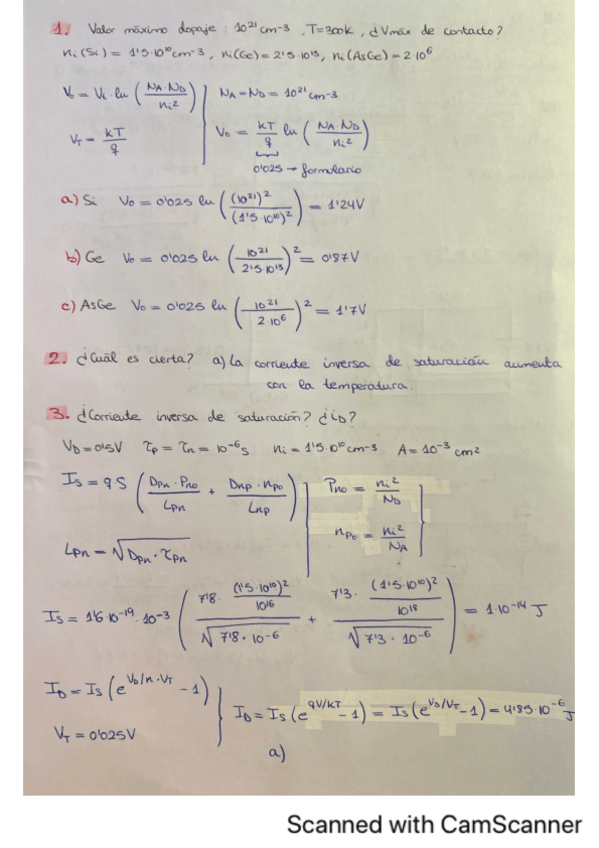 1. Valor máximo dopaje: 10²¹ cm-3, T=300k, ¿Vmáx de contacto?
ni(Si) = 1'5·10¹⁰ cm-3, ni(Ge) = 2'5·10¹³, ni(AsGe) = 2·10⁶
V₀ = Vt ln (NA·ND / ni²) | NA = ND = 10²¹ cm-3
VT = kT/q | V₀ = kT/q ln (NA·ND / ni²)
0'025 → formulario
a) Si V₀ = 0'025 ln ((10²¹)² / (1'5·10¹⁰)²) = 1'24V
b) Ge V₀ = 0'025 ln (10²¹ / 2'5·10¹³)² = 0'87V
c) AsGe V₀ = 0'025 ln (10²¹ / 2·10⁶)² = 1'7V
2. ¿Cuál es cierta? a) La corriente inversa de saturación aumenta
con la temperatura.
3. ¿Corriente inversa de saturación? ¿iD?
VD = 0'5V τp = τn = 10⁻⁶s ni = 1'5·10¹⁰ cm-3 A = 10⁻³ cm²
Is = q S (Dpn·Pno / Lpn + Dnp·npo / Lnp) | Pno = ni² / ND
Lpn = √(Dpn·τpn) | npo = ni² / NA
Is = 1'6·10⁻¹⁹·10⁻³ (7'8· (1'5·10¹⁰)² / 10¹⁶ / √(7'8·10⁻⁶) + 7'3· (1'5·10¹⁰)² / 10¹⁸ / √(7'3·10⁻⁶)) = 1·10⁻¹⁴ J
ID = Is (e^(VD/n·VT) - 1) | ID = Is (e^(qV/kT) - 1) = Is (e^(VD/VT) - 1) = 4'85·10⁻⁶ J
VT = 0'025V
a)
Scanned with CamScanner